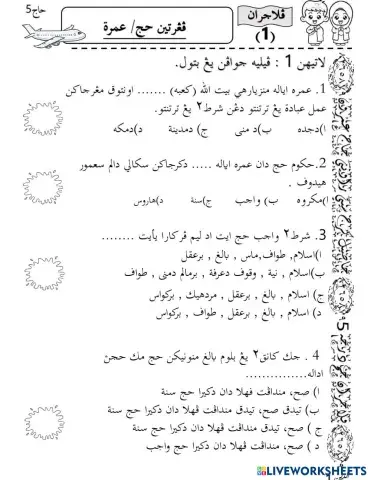 حاج5
ڤلاجران
(1)
ڤڠرتين حج/ عمرة
لاتيهن 1 : ڤيليه جواڤن يڠ بتول.
1. عمره اياله منزيارهي بيت الله (كعبه) ....... اونتوق مڠرجاكن
عمل عبادة يڠ ترتنتو دڠن شرط٢ يڠ ترتنتو.
ا)دجده ب)د منى ج) دمدينة د)دمكه
2.حكوم حج دان عمره اياله ..... دكرجاكن سكالي دالم سعمور
هيدوف .
ا)مكروه ب) واجب ج)سنة د)هاروس
3. شرط٢ واجب حج ايت اد ليم ڤركارا يأيت ........
ا)اسلام, طواف,ماس , بالغ , برعقل
ب)اسلام , نية , وقوف دعرفة , برمالم دمنى , طواف
ج) اسلام , بالغ , برعقل , مردهيك , بركواس
د) اسلام , بالغ , برعقل , طواف , بركواس
4 . جك كانق٢ يڠ بلوم بالغ منونيكن حج مك حجن
اداله...............
ا) صح, منداڤت ڤهلا دان دكيرا حج سنة
ب) تيدق صح, تيدق منداڤت ڤهلا دان دكيرا حج سنة
ج ) صح, تيدق منداڤت ڤهلا دان دكيرا حج سنة
د ) صح, منداڤت ڤهلا دان دكيرا حج واجب
LIVEWORKSHEETS